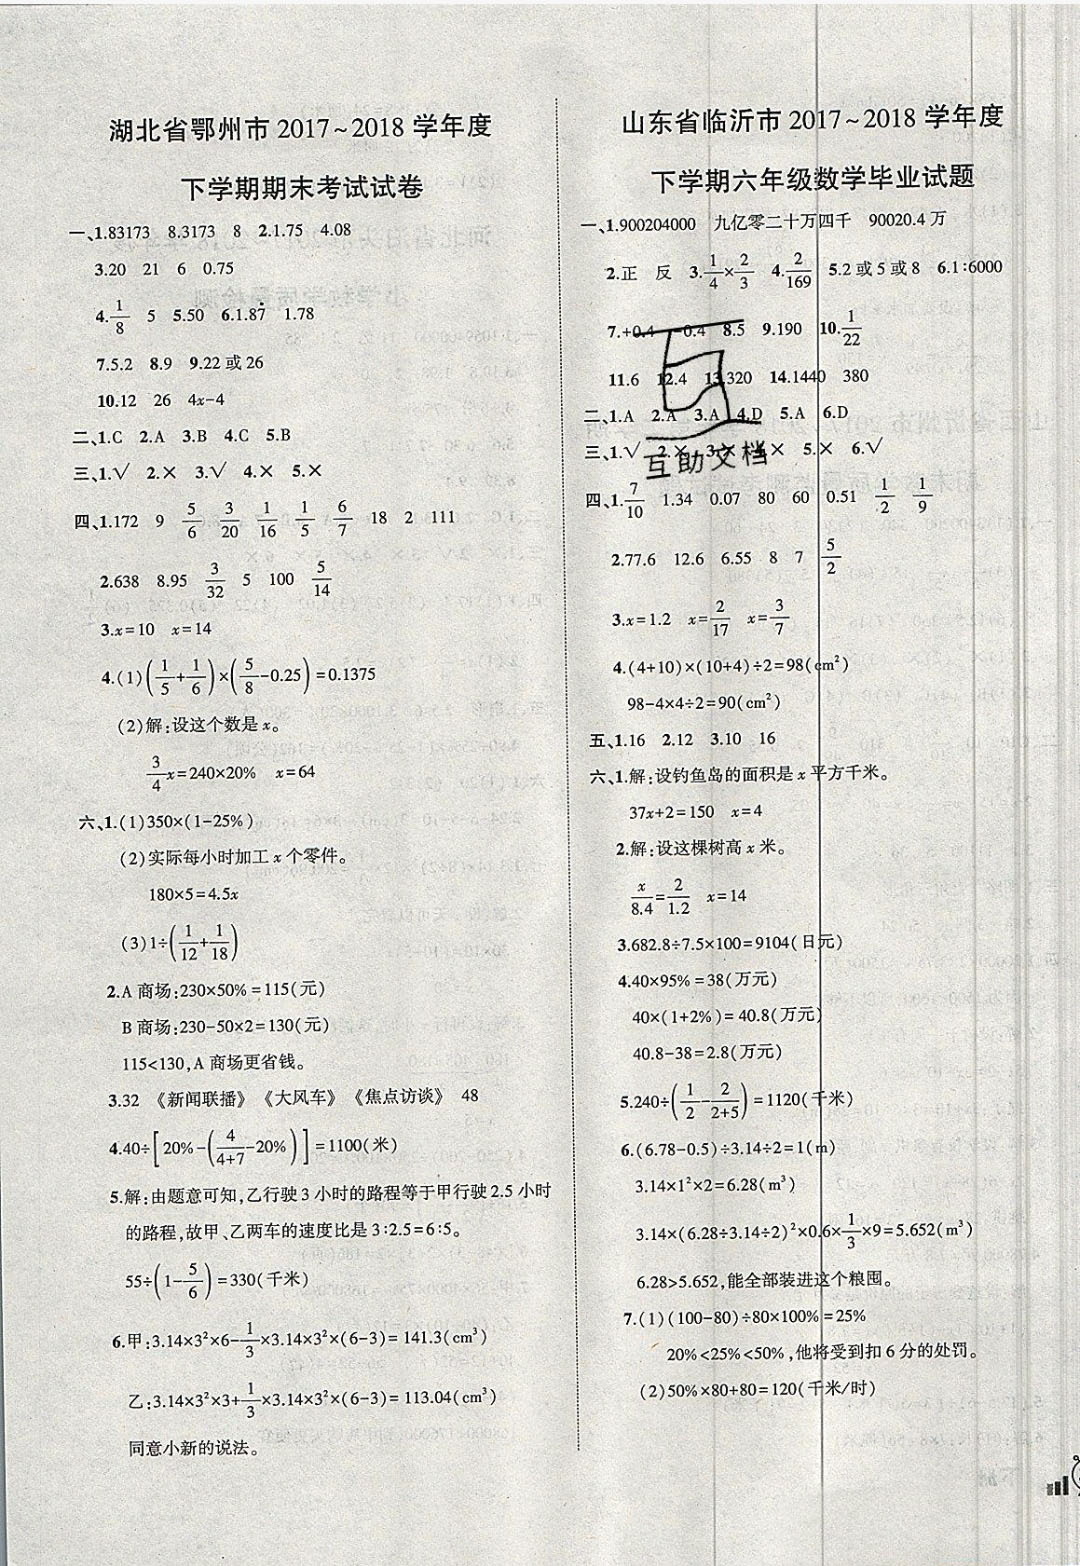 湖北省鄂州市 2017~2018 学年度
下学期期末考试试卷
一、1.83173 8.3173 8 2.1.75 4.08
3.20 21 6 0.75
4.1/8 5 5.50 6.1.87̇ 1.78
7.5.2 8.9 9.22 或 26
10.12 26 4x-4
二、1.C 2.A 3.B 4.C 5.B
三、1.√ 2.× 3.√ 4.× 5.×
四、1.172 9 5/6 3/20 1/16 1/5 6/7 18 2 111
2.638 8.95 3/32 5 100 5/14
3.x=10 x=14
4.(1)(1/5+1/6)×(5/8-0.25)=0.1375
(2)解:设这个数是 x。
3/4x=240×20% x=64
六、1.(1)350×(1-25%)
(2)实际每小时加工 x 个零件。
180×5=4.5x
(3)1÷(1/12+1/18)
2.A 商场:230×50%=115(元)
B 商场:230-50×2=130(元)
115<130,A 商场更省钱。
3.32 《新闻联播》 《大风车》 《焦点访谈》 48
4.40÷[20%-(4/(4+7)-20%)]=1100(米)
5.解:由题意可知,乙行驶 3 小时的路程等于甲行驶 2.5 小时
的路程,故甲、乙两车的速度比是 3∶2.5=6∶5。
55÷(1-5/6)=330(千米)
6.甲:3.14×3²×6-1/3×3.14×3²×(6-3)=141.3(cm³)
乙:3.14×3²×3+1/3×3.14×3²×(6-3)=113.04(cm³)
同意小新的说法。
山东省临沂市 2017~2018 学年度
下学期六年级数学毕业试题
一、1.900204000 九亿零二十万四千 90020.4 万
2.正 反 3.1/4×2/3 4.2/169 5.2 或 5 或 8 6.1∶6000
7.+0.4 -0.4 8.5 9.190 10.1/22
11.6 12.4 13.320 14.1440 380
二、1.A 2.A 3.A 4.D 5.A 6.D
三、1.√ 2.× 3.× 4.× 5.× 6.√
互助文档
四、1.7/10 1.34 0.07 80 60 0.51 1/2 1/9
2.77.6 12.6 6.55 8 7 5/2
3.x=1.2 x=2/17 x=3/7
4.(4+10)×(10+4)÷2=98(cm²)
98-4×4÷2=90(cm²)
五、1.16 2.12 3.10 16
六、1.解:设钓鱼岛的面积是 x 平方千米。
37x+2=150 x=4
2.解:设这棵树高 x 米。
x/8.4=2/1.2 x=14
3.682.8÷7.5×100=9104(日元)
4.40×95%=38(万元)
40×(1+2%)=40.8(万元)
40.8-38=2.8(万元)
5.240÷(1/2-2/(2+5))=1120(千米)
6.(6.78-0.5)÷3.14÷2=1(m)
3.14×1²×2=6.28(m³)
3.14×(6.28÷3.14÷2)²×0.6×1/3×9=5.652(m³)
6.28>5.652,能全部装进这个粮囤。
7.(1)(100-80)÷80×100%=25%
20%<25%<50%,他将受到扣 6 分的处罚。
(2)50%×80+80=120(千米/时)